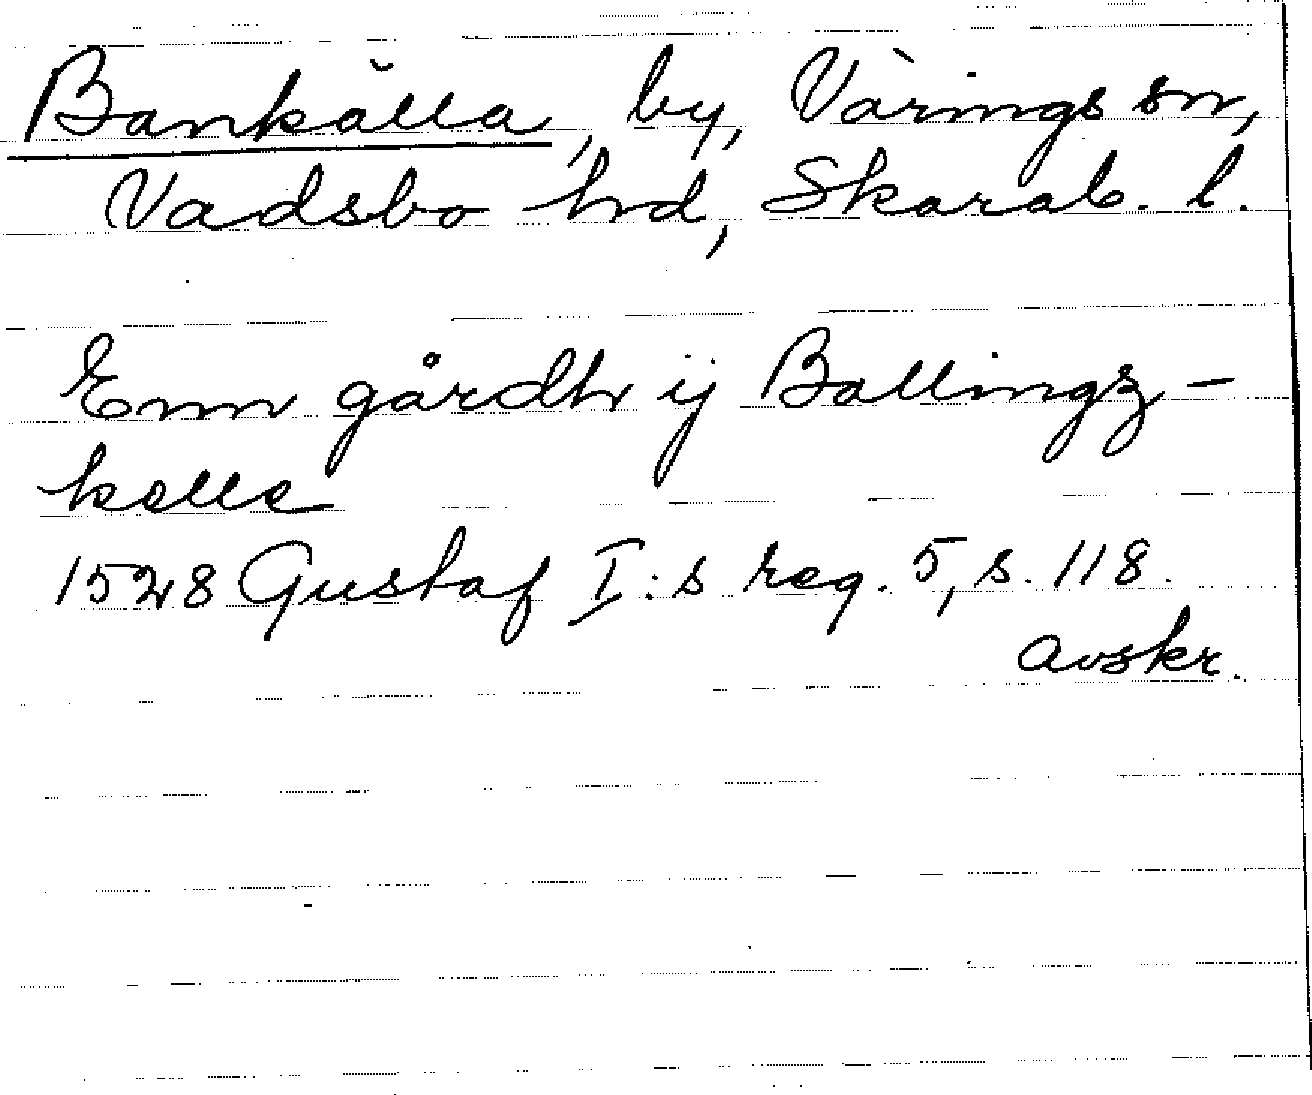 Bankälla, by, Värings sn,
Vadsbo hrd, Skarab. l.
Enn gårdh ij Ballingz-
kelle
1528 Gustaf I:s reg. 5, s. 118.
avskr.